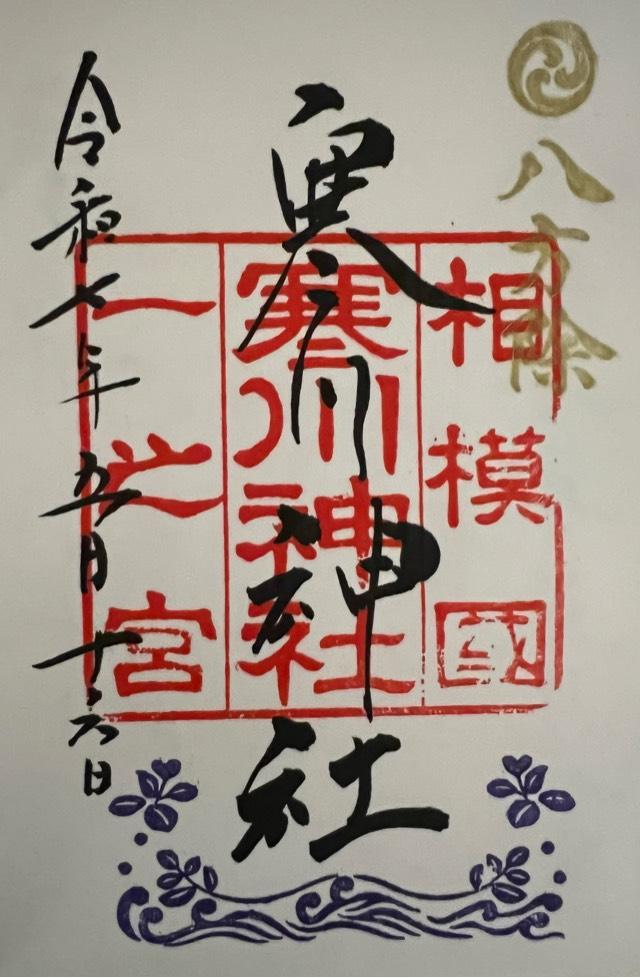 八方除
相模國
寒川神社
一之宮
寒川神社
令和七年五月十六日